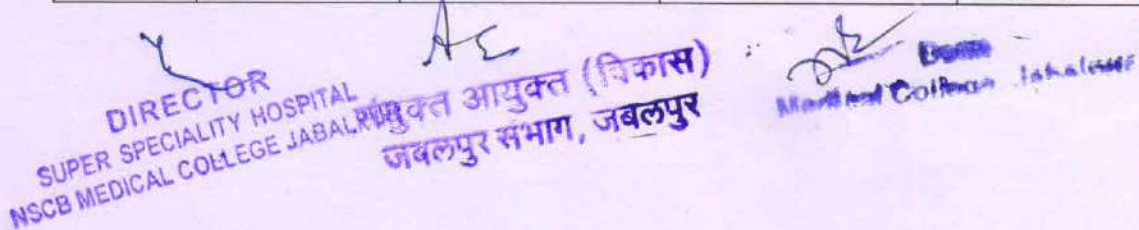 DIRECTOR
SUPER SPECIALITY HOSPITAL
NSCB MEDICAL COLLEGE JABALPUR
संयुक्त आयुक्त (विकास)
जबलपुर संभाग, जबलपुर
Dean
Medical College Jabalpur